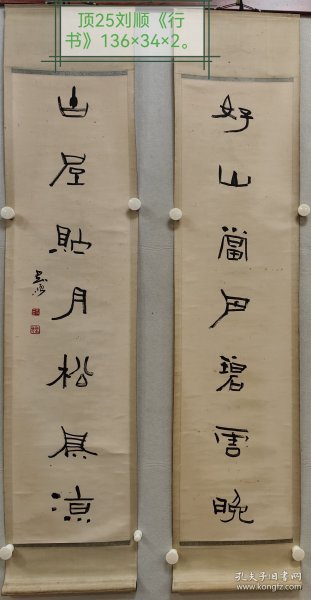 顶25刘顺《行
书》136×34×2。
好山當户碧雲晚
古屋貼月松
涼
孔夫子旧书网